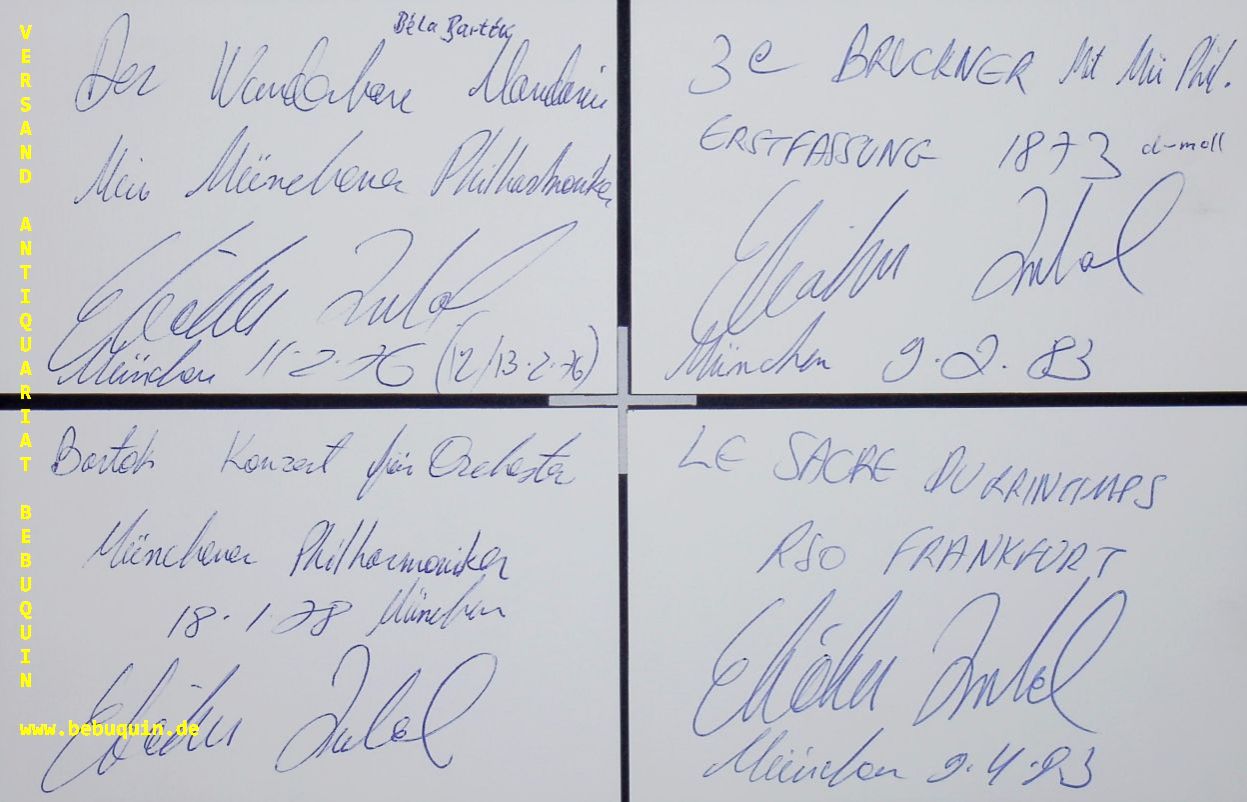 VERSAND ANTIQUARIAT BEBUQUIN
www.bebuquin.de
Béla Bartók
Der Wunderbare Mandarin
Mein Münchener Philharmoniker
Eliahu Inbal
München 11.2.76 (12/13.2.76)
3e BRUCKNER Mit Mü Phil.
ERSTFASSUNG 1873 d-moll
Eliahu Inbal
München 9.2.83
Bartok Konzert für Orchester
Münchener Philharmoniker
18.1.78 München
Eliahu Inbal
LE SACRE DU PRINTEMPS
RSO FRANKFURT
Eliahu Inbal
München 9.4.83